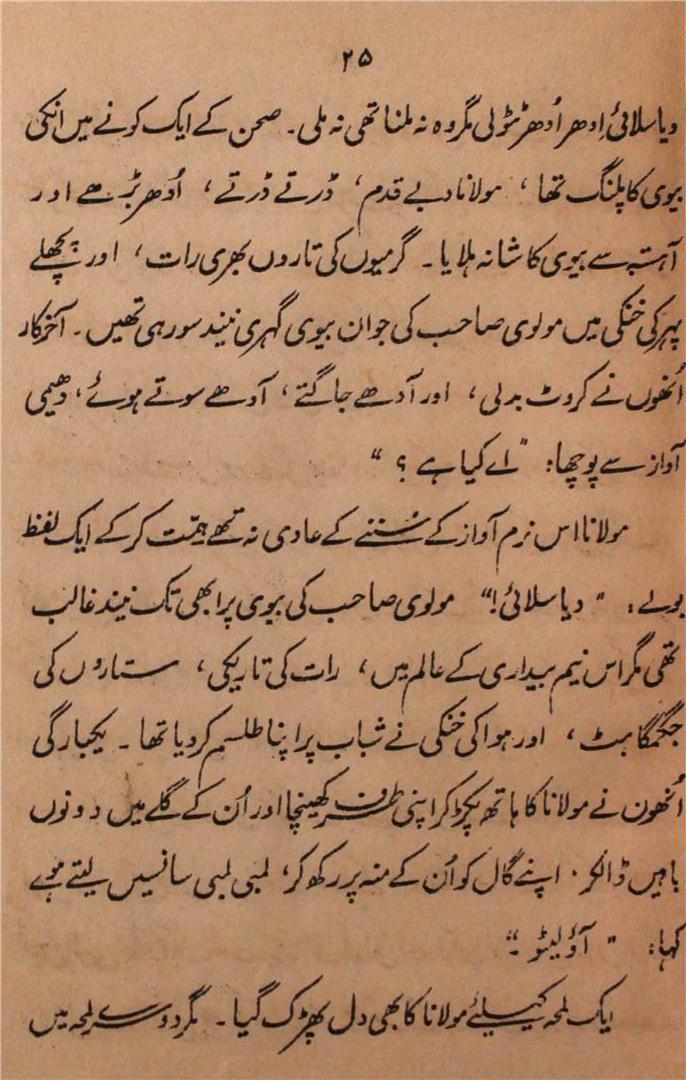 ۲۵
دیاسلائی اِدھر اُدھر ٹٹولی مگر وہ نہ ملنا تھی نہ ملی۔ صحن کے ایک کونے میں انکی
بیوی کا پلنگ تھا، مولانا دبے قدم، ڈرتے ڈرتے، اُدھر بڑھے اور
آہستہ سے بیوی کا شانہ ہلایا۔ گرمیوں کی تاروں بھری رات، اور پچھلے
پہر کی خنکی میں مولوی صاحب کی جوان بیوی گہری نیند سو رہی تھیں۔ آخرکار
اُنھوں نے کروٹ بدلی، اور آدھے جاگتے، آدھے سوتے ہوئے، دھیمی
آواز سے پوچھا: "اے کیا ہے؟"
مولانا اس نرم آواز کے سُننے کے عادی نہ تھے ہمّت کر کے ایک لفظ
بولے: "دیاسلائی!" مولوی صاحب کی بیوی پر ابھی تک نیند غالب
تھی مگر اس نیم بیداری کے عالم میں، رات کی تاریکی، ستاروں کی
جگمگاہٹ، اور ہوا کی خنکی نے شباب پر اپنا طلسم کر دیا تھا۔ یکبارگی
اُنھون نے مولانا کا ہاتھ پکڑ کر اپنی طرف کھینچا اور اُن کے گلے میں دونوں
باہیں ڈالکر۔ اپنے گال کو اُن کے منہ پر رکھ کر، لمبی لمبی سانسیں لیتے ہوئے
کہا: "آؤ لیٹو۔"
ایک لمحہ کیلئے مولانا کا بھی دل پھڑک گیا۔ مگر دوسرے لمحہ میں